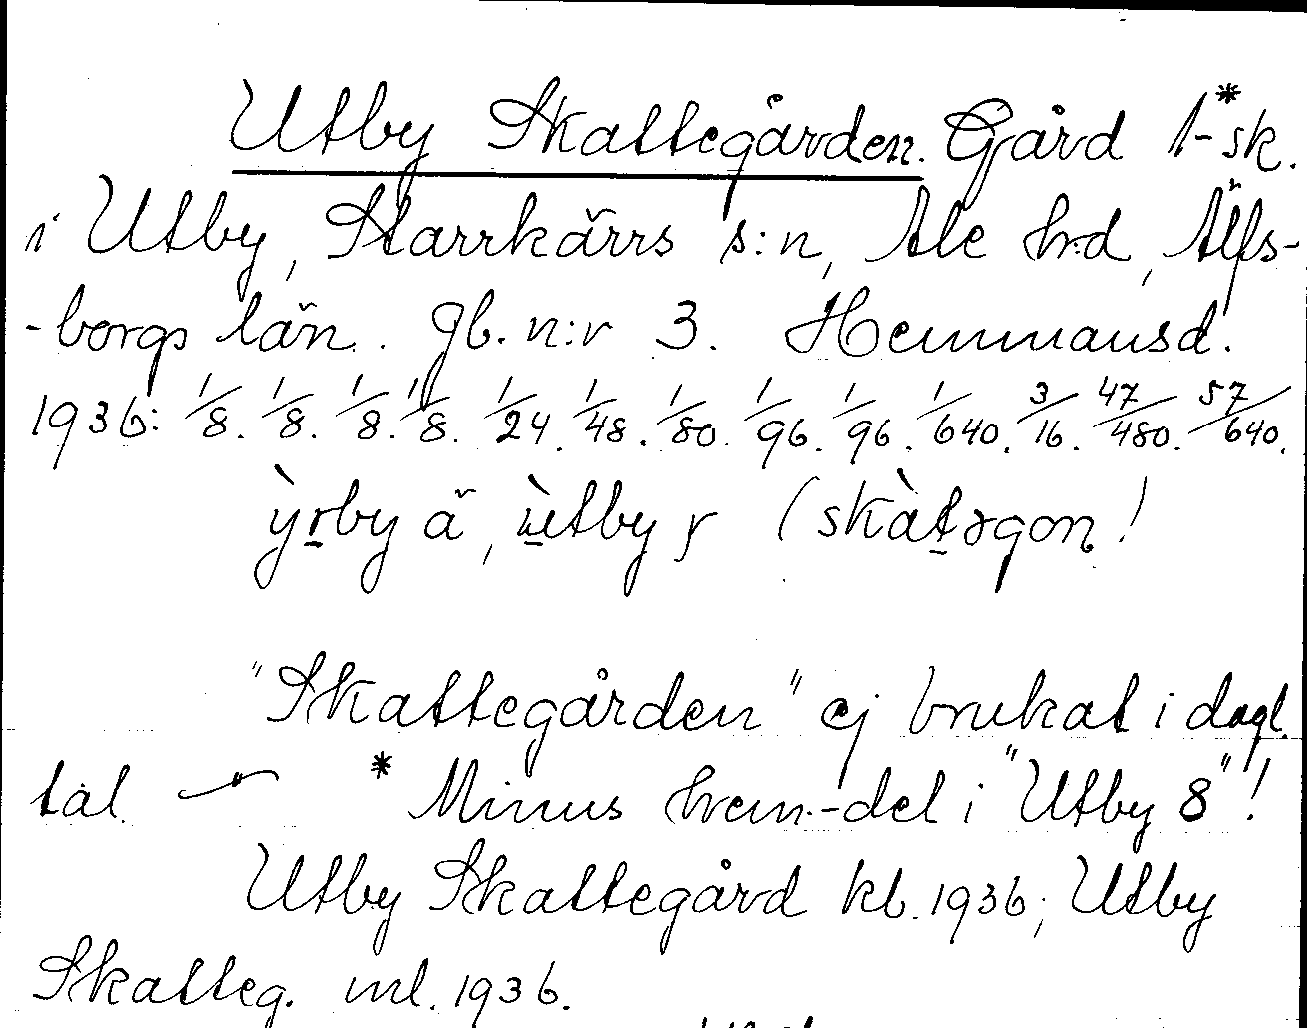 Utby Skattegården. Gård 1*-sk.
i Utby, Starrkärrs s:n, Ale h:d, Älfs-
-borgs län. Jb. n:r 3. Hemmansd.
1936: 1/8. 1/8. 1/8. 1/8. 1/24. 1/48. 1/80. 1/96. 1/96. 1/640. 3/16. 47/480. 57/640.
ỳrby ä, ùtby y (skàtəgon!
"Skattegården" ej brukat i dagl.
tal — * Minus hem.-del i "Utby 8"!
Utby Skattegård kb. 1936; Utby
Skatteg. ml. 1936.